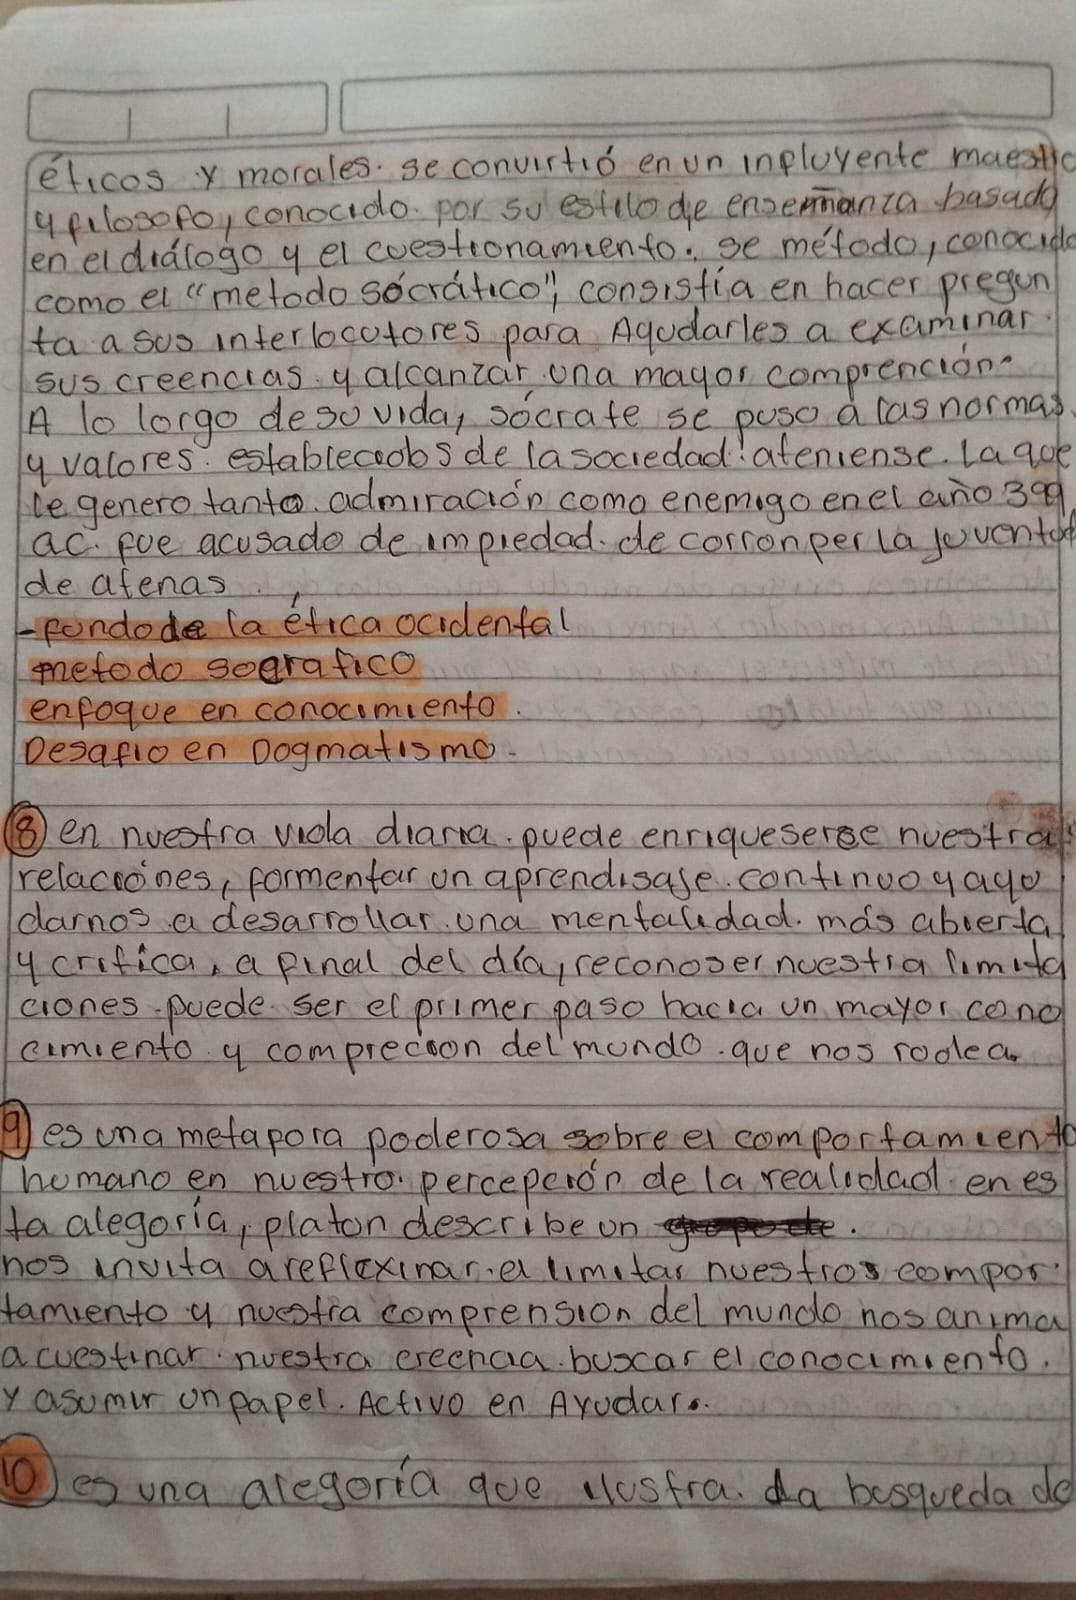 éticos y morales. se convirtió en un inpluyente maestro
y pilosopo, conocido. por su estilo de ensemanza basado
en el diálogo y el cuestionamiento. se método, conocido
como el "metodo sócrático", consistía en hacer pregun
ta a sus interlocutores para Ayudarles a examinar.
sus creencias. y alcanzar una mayor comprención.
A lo lorgo de su vida, sócrate se puso a las normas.
y valores. establecidos de la sociedad. ateniense. La que
le genero tanto. admiración como enemigo en el año 399
ac. fue acusado de impiedad. de corronper la juventud
de atenas.
-fondo de la ética ocidental
metodo sografico
enfoque en conocimiento.
Desafio en Dogmatismo.
8) en nuestra vida diaria. puede enriqueserse nuestra
relaciones, formentar un aprendisaje. continuo y ayu
darnos a desarrollar. una mentalidad. más abierta
y critica, a final del día, reconoser nuestra limita
ciones. puede. ser el primer paso hacia un mayor cono
cimiento. y comprecion del mundo. que nos rodea.
9) es una metapora poderosa sobre el comportamiento
humano en nuestro. percepción de la realidad. en es
ta alegoría, platon describe un .
nos invita a reflexinar. a limitar nuestros compor.
tamiento y nuestra comprension del mundo nos anima
a cuestinar. nuestra creencia. buscar el conocimiento.
y asumir un papel. Activo en Ayudar.
10) es una alegoría que ilustra. La busqueda de